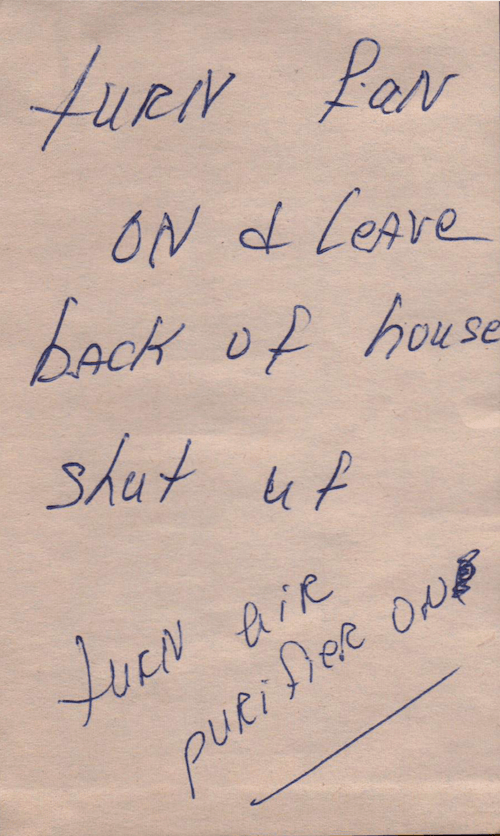 TURN FaN
ON & LeAve
bACK of house
shut uf
TURN AiR
PURifieR ON